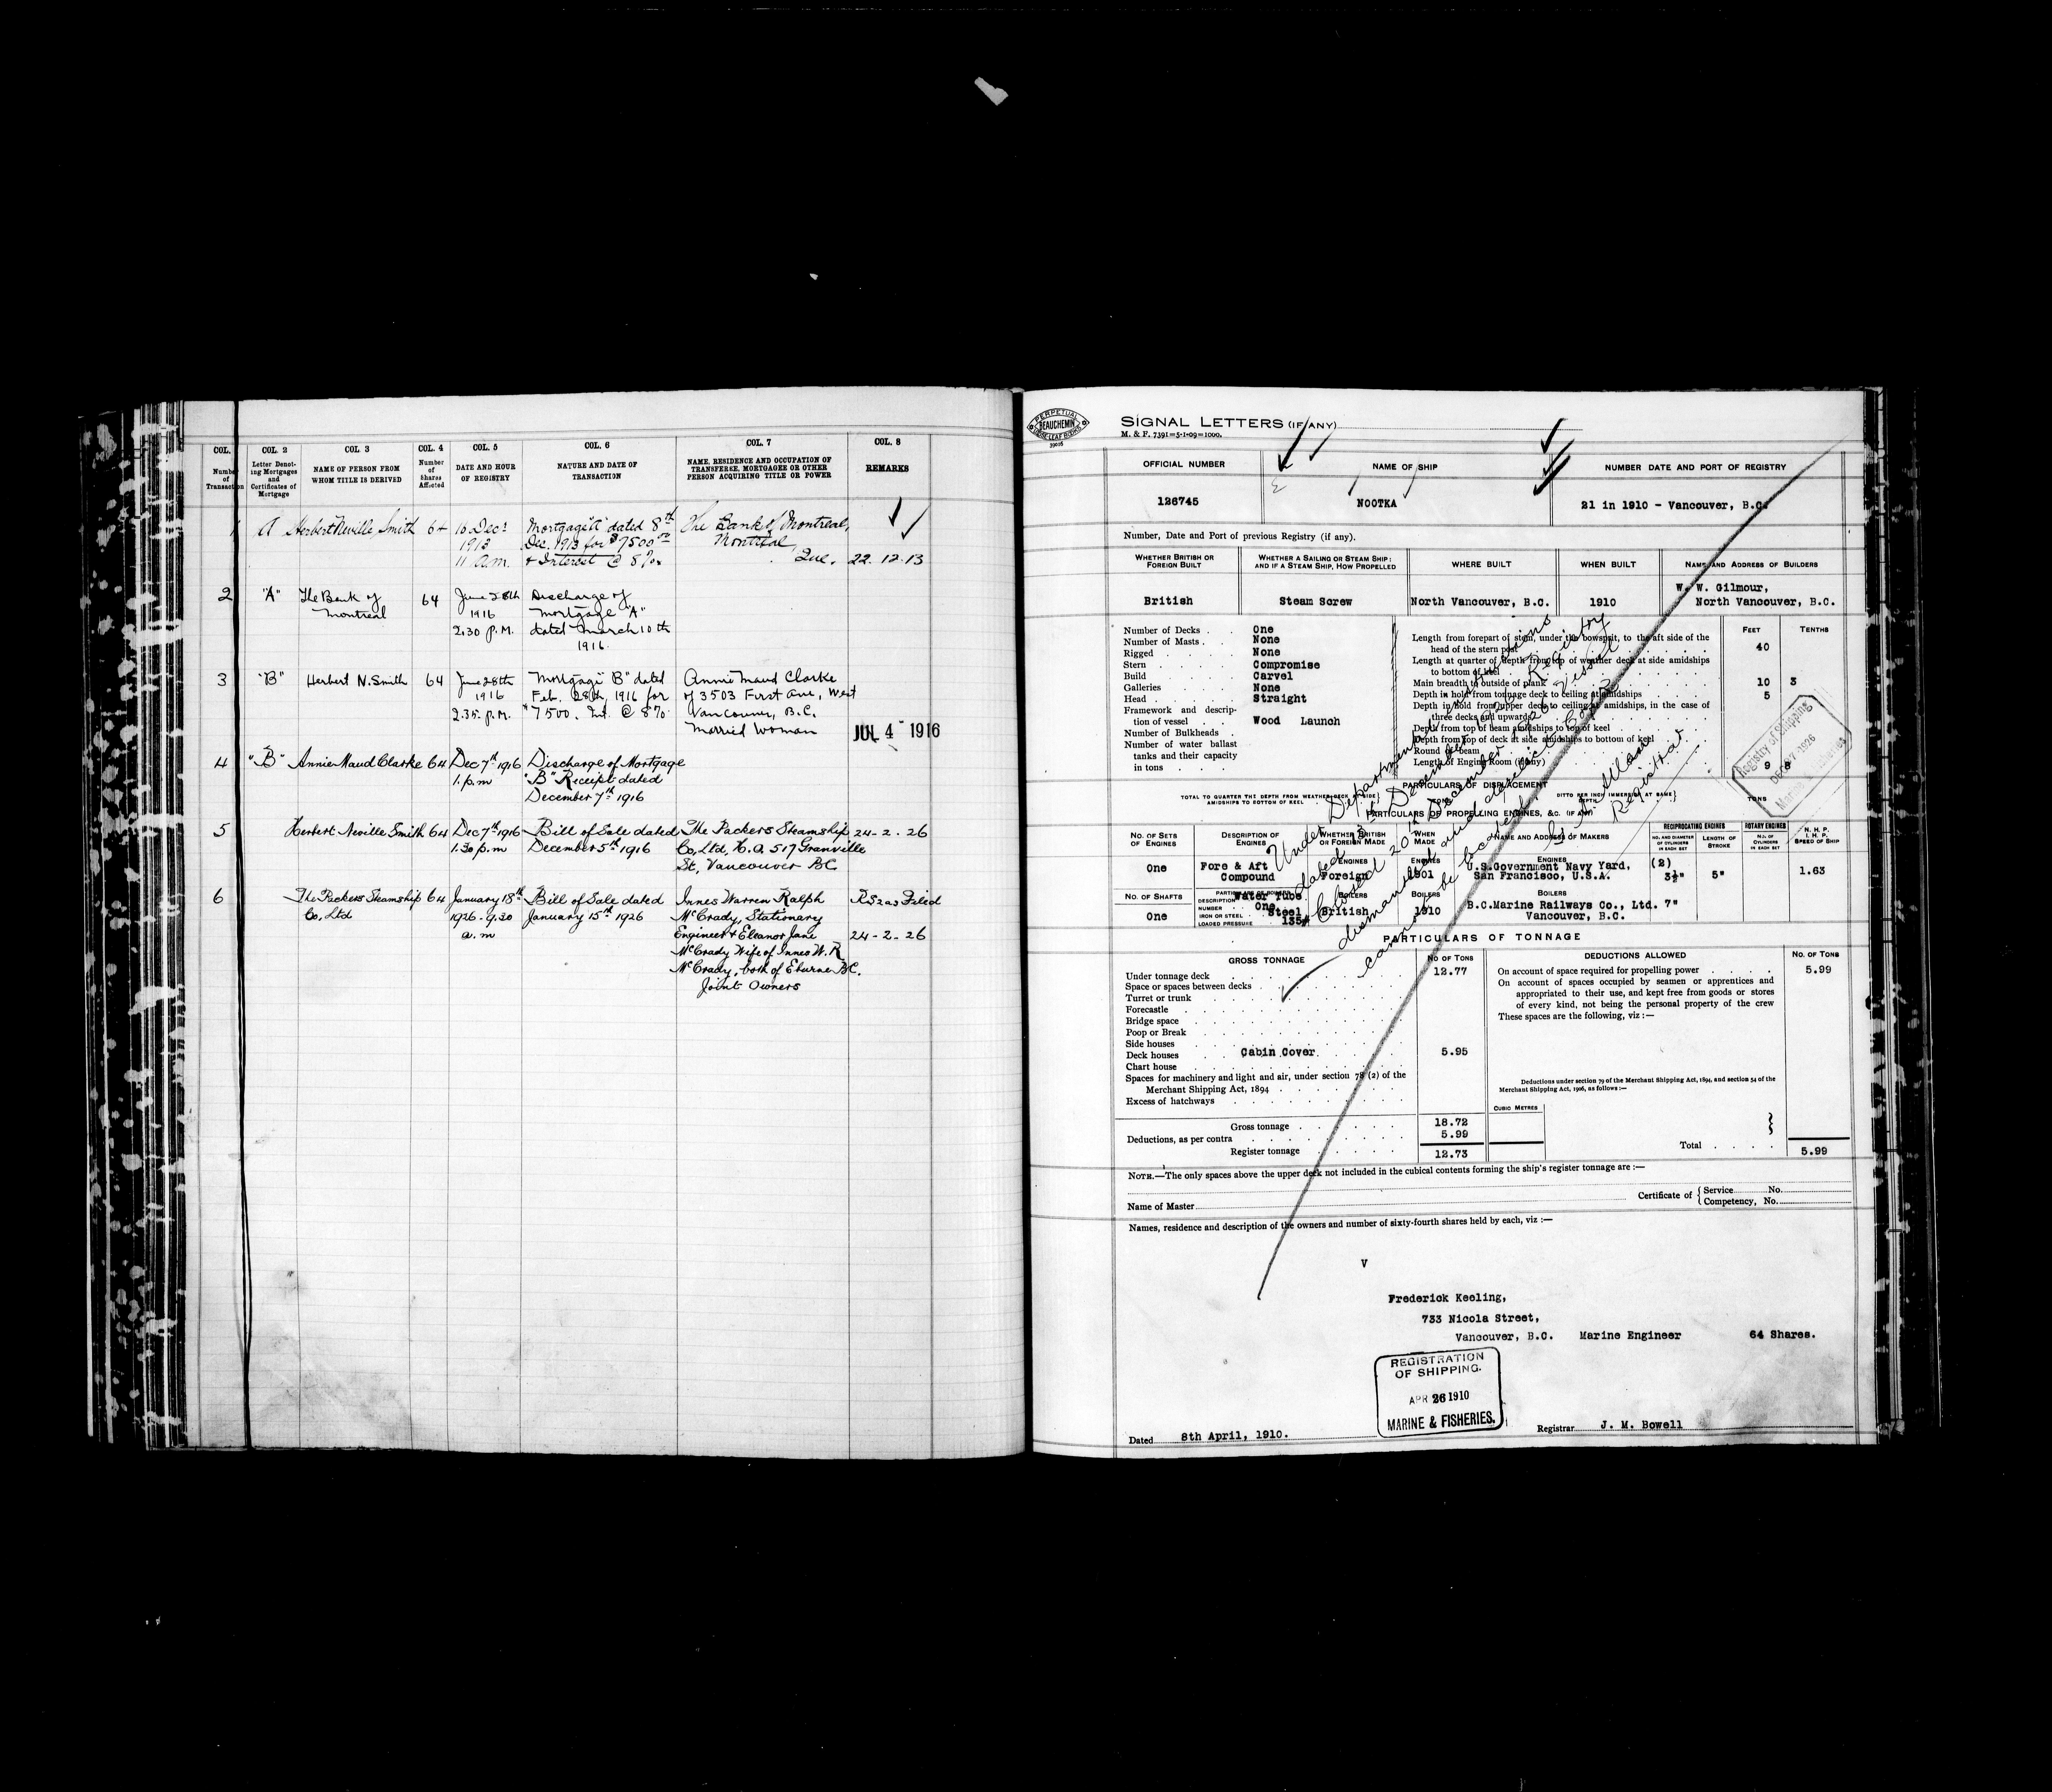 COL. COL. 2 COL. 3 COL. 4 COL. 5 COL. 6 COL. 7 COL. 8
Number of Transaction
Letter Denoting Mortgages and Certificates of Mortgage
NAME OF PERSON FROM WHOM TITLE IS DERIVED
Number of Shares Affected
DATE AND HOUR OF REGISTRY
NATURE AND DATE OF TRANSACTION
NAME, RESIDENCE AND OCCUPATION OF TRANSFERSE, MORTGAGEE OR OTHER PERSON ACQUIRING TITLE OR POWER
REMARKS
1 A Herbert Neville Smith 64 10 Dec. Mortgage "A" dated 8th The Bank of Montreal,
1913 Dec. 1913 for $7500 00 Montreal,
11 a.m. & Interest @ 8% Que. 22.12.13
2 "A" The Bank of 64 June 28th Discharge of
Montreal 1916 Mortgage "A"
2.30 P.M. dated March 10th
1916.
3 "B" Herbert N. Smith 64 June 28th Mortgage "B" dated Annie Maud Clarke
1916 Feb. 28th, 1916 for of 3503 First Ave, West
2.35 P.M. $7500. Int. @ 8% Vancouver, B.C.
Married Woman JUL 4 - 1916
4 "B" Annie Maud Clarke 64 Dec 7th 1916 Discharge of Mortgage
1. p.m "B" Receipt dated
December 7th 1916
5 Herbert Neville Smith 64 Dec 7th 1916 Bill of Sale dated The Packers Steamship 24-2-26
1.30 p.m December 5th 1916 Co, Ltd, H.O. 517 Granville
St, Vancouver BC
6 The Packers Steamship 64 January 18th Bill of Sale dated Innes Warren Ralph RS2as Filed
Co, Ltd 1926. 9.30 January 15th 1926 McCrady, Stationary
a.m Engineer & Eleanor Jane 24-2-26
McCrady Wife of Innes W. R.
McCrady, both of Eburne BC.
Joint Owners
PERPETUAL
BEAUCHEMIN
SIGNAL LETTERS (IF ANY)
M. & F. 7391=5-1-09=1000.
OFFICIAL NUMBER NAME OF SHIP NUMBER DATE AND PORT OF REGISTRY
126745 NOOTKA 21 in 1910 - Vancouver, B.C.
Number, Date and Port of previous Registry (if any).
WHETHER BRITISH OR FOREIGN BUILT
WHETHER A SAILING OR STEAM SHIP; AND IF A STEAM SHIP, HOW PROPELLED
WHERE BUILT
WHEN BUILT
NAME AND ADDRESS OF BUILDERS
British Steam Screw North Vancouver, B.C. 1910 W. W. Gilmour,
North Vancouver, B.C.
Number of Decks . . One
Number of Masts . . None
Rigged . . . . None
Stern . . . . Compromise
Build . . . . Carvel
Galleries . . . . None
Head . . . . Straight
Framework and description of vessel . . Wood Launch
Number of Bulkheads .
Number of water ballast
tanks and their capacity
in tons . . .
FEET TENTHS
Length from forepart of stem, under the bowsprit, to the aft side of the
head of the stern post 40
Length at quarter of depth from top of weather deck at side amidships
to bottom of keel
Main breadth to outside of plank 10 3
Depth in hold from tonnage deck to ceiling at amidships 5
Depth in hold from upper deck to ceiling at amidships, in the case of
three decks and upwards
Depth from top of beam amidships to top of keel
Depth from top of deck at side amidships to bottom of keel
Round of beam
Length of Engine Room (if any) 9 8
PARTICULARS OF DISPLACEMENT
TOTAL TO QUARTER THE DEPTH FROM WEATHER DECK AT SIDE AMIDSHIPS TO BOTTOM OF KEEL
TONS
DITTO PER INCH IMMERSION AT SAME DEPTH
TONS
PARTICULARS OF PROPELLING ENGINES, &C. (IF ANY)
NO. OF SETS OF ENGINES
DESCRIPTION OF ENGINES
WHETHER BRITISH OR FOREIGN MADE
WHEN MADE
NAME AND ADDRESS OF MAKERS
RECIPROCATING ENGINES
NO. AND DIAMETER OF CYLINDERS IN EACH SET
LENGTH OF STROKE
ROTARY ENGINES
NO. OF CYLINDERS IN EACH SET
N. H. P.
I. H. P.
SPEED OF SHIP
ENGINES ENGINES ENGINES
One Fore & Aft Compound Foreign 1901 U.S.Government Navy Yard, San Francisco, U.S.A. (2) 3½" 5" 1.63
NO. OF SHAFTS PARTICULARS OF BOILERS BOILERS BOILERS BOILERS
One DESCRIPTION Water Tube
NUMBER One
IRON OR STEEL Steel
LOADED PRESSURE 135#
British 1910 B.C.Marine Railways Co., Ltd. 7"
Vancouver, B.C.
Closed 20th December 1926 Vessel
cannot be located
Registrar
Registry of Shipping
DEC 27 1926
PARTICULARS OF TONNAGE
GROSS TONNAGE NO OF TONS DEDUCTIONS ALLOWED NO. OF TONS
Under tonnage deck 12.77
Space or spaces between decks
Turret or trunk
Forecastle
Bridge space
Poop or Break
Side houses
Deck houses Cabin Cover 5.95
Chart house
Spaces for machinery and light and air, under section 78 (2) of the
Merchant Shipping Act, 1894
Excess of hatchways
On account of space required for propelling power 5.99
On account of spaces occupied by seamen or apprentices and
appropriated to their use, and kept free from goods or stores
of every kind, not being the personal property of the crew
These spaces are the following, viz :—
Deductions under section 79 of the Merchant Shipping Act, 1894, and section 54 of the
Merchant Shipping Act, 1906, as follows :—
CUBIC METRES
Gross tonnage 18.72
Deductions, as per contra 5.99
Register tonnage 12.73
Total 5.99
NOTE.—The only spaces above the upper deck not included in the cubical contents forming the ship's register tonnage are :—
Name of Master
Certificate of { Service No.
Competency, No.
Names, residence and description of the owners and number of sixty-fourth shares held by each, viz :—
V
Frederick Keeling,
733 Nicola Street,
Vancouver, B.C. Marine Engineer 64 Shares.
REGISTRATION
OF SHIPPING.
APR 26 1910
MARINE & FISHERIES.
Dated 8th April, 1910. Registrar J. M. Bowell